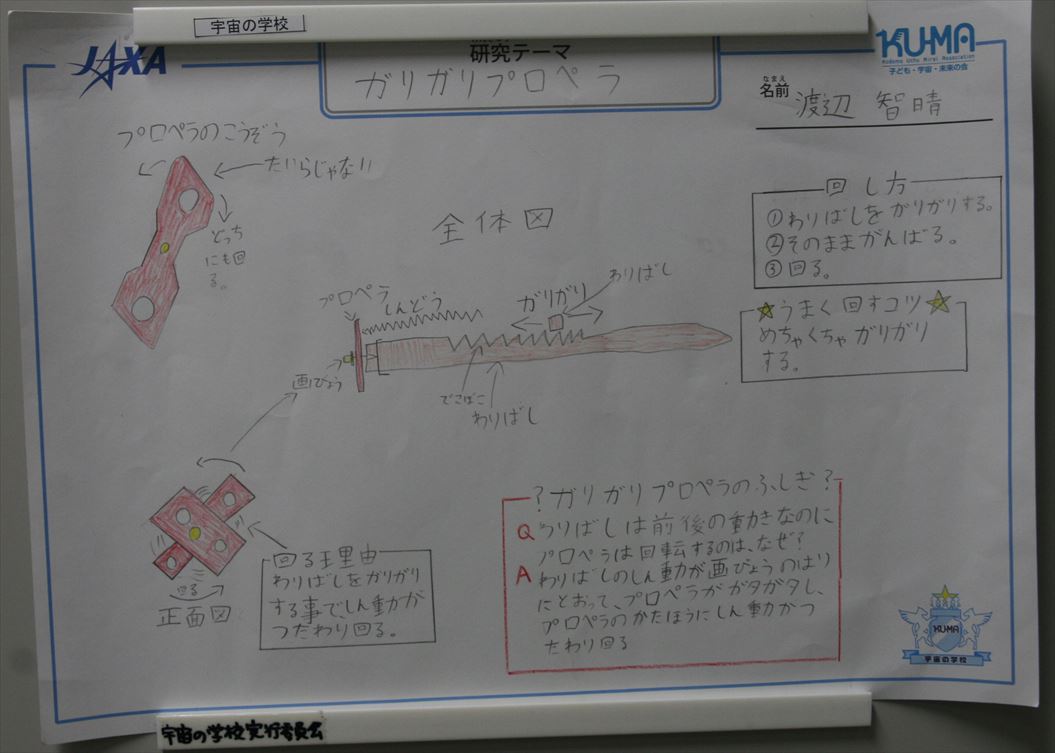 宇宙の学校
JAXA
研究テーマ
ガリガリプロペラ
KU-MA
Kodomo Uchu Mirai Association
子ども・宇宙・未来の会
なまえ
名前 渡辺 智晴
プロペラのこうぞう
たいらじゃない
どっち
にも回
る。
全体図
回し方
①わりばしをガリガリする。
②そのままがんばる。
③回る。
うまく回すコツ
めちゃくちゃガリガリ
する。
プロペラ
しんどう
ガリガリ
わりばし
画びょう
でこぼこ
わりばし
回る
正面図
回る理由
わりばしをガリガリ
する事でしん動が
つたわり回る。
?ガリガリプロペラのふしぎ?
Q わりばしは前後の動きなのに
プロペラは回転するのは、なぜ?
A わりばしのしん動が画びょうのはり
にとおって、プロペラがガタガタし、
プロペラのかたほうにしん動がつ
たわり回る
KUMA
宇宙の学校
宇宙の学校実行委員会